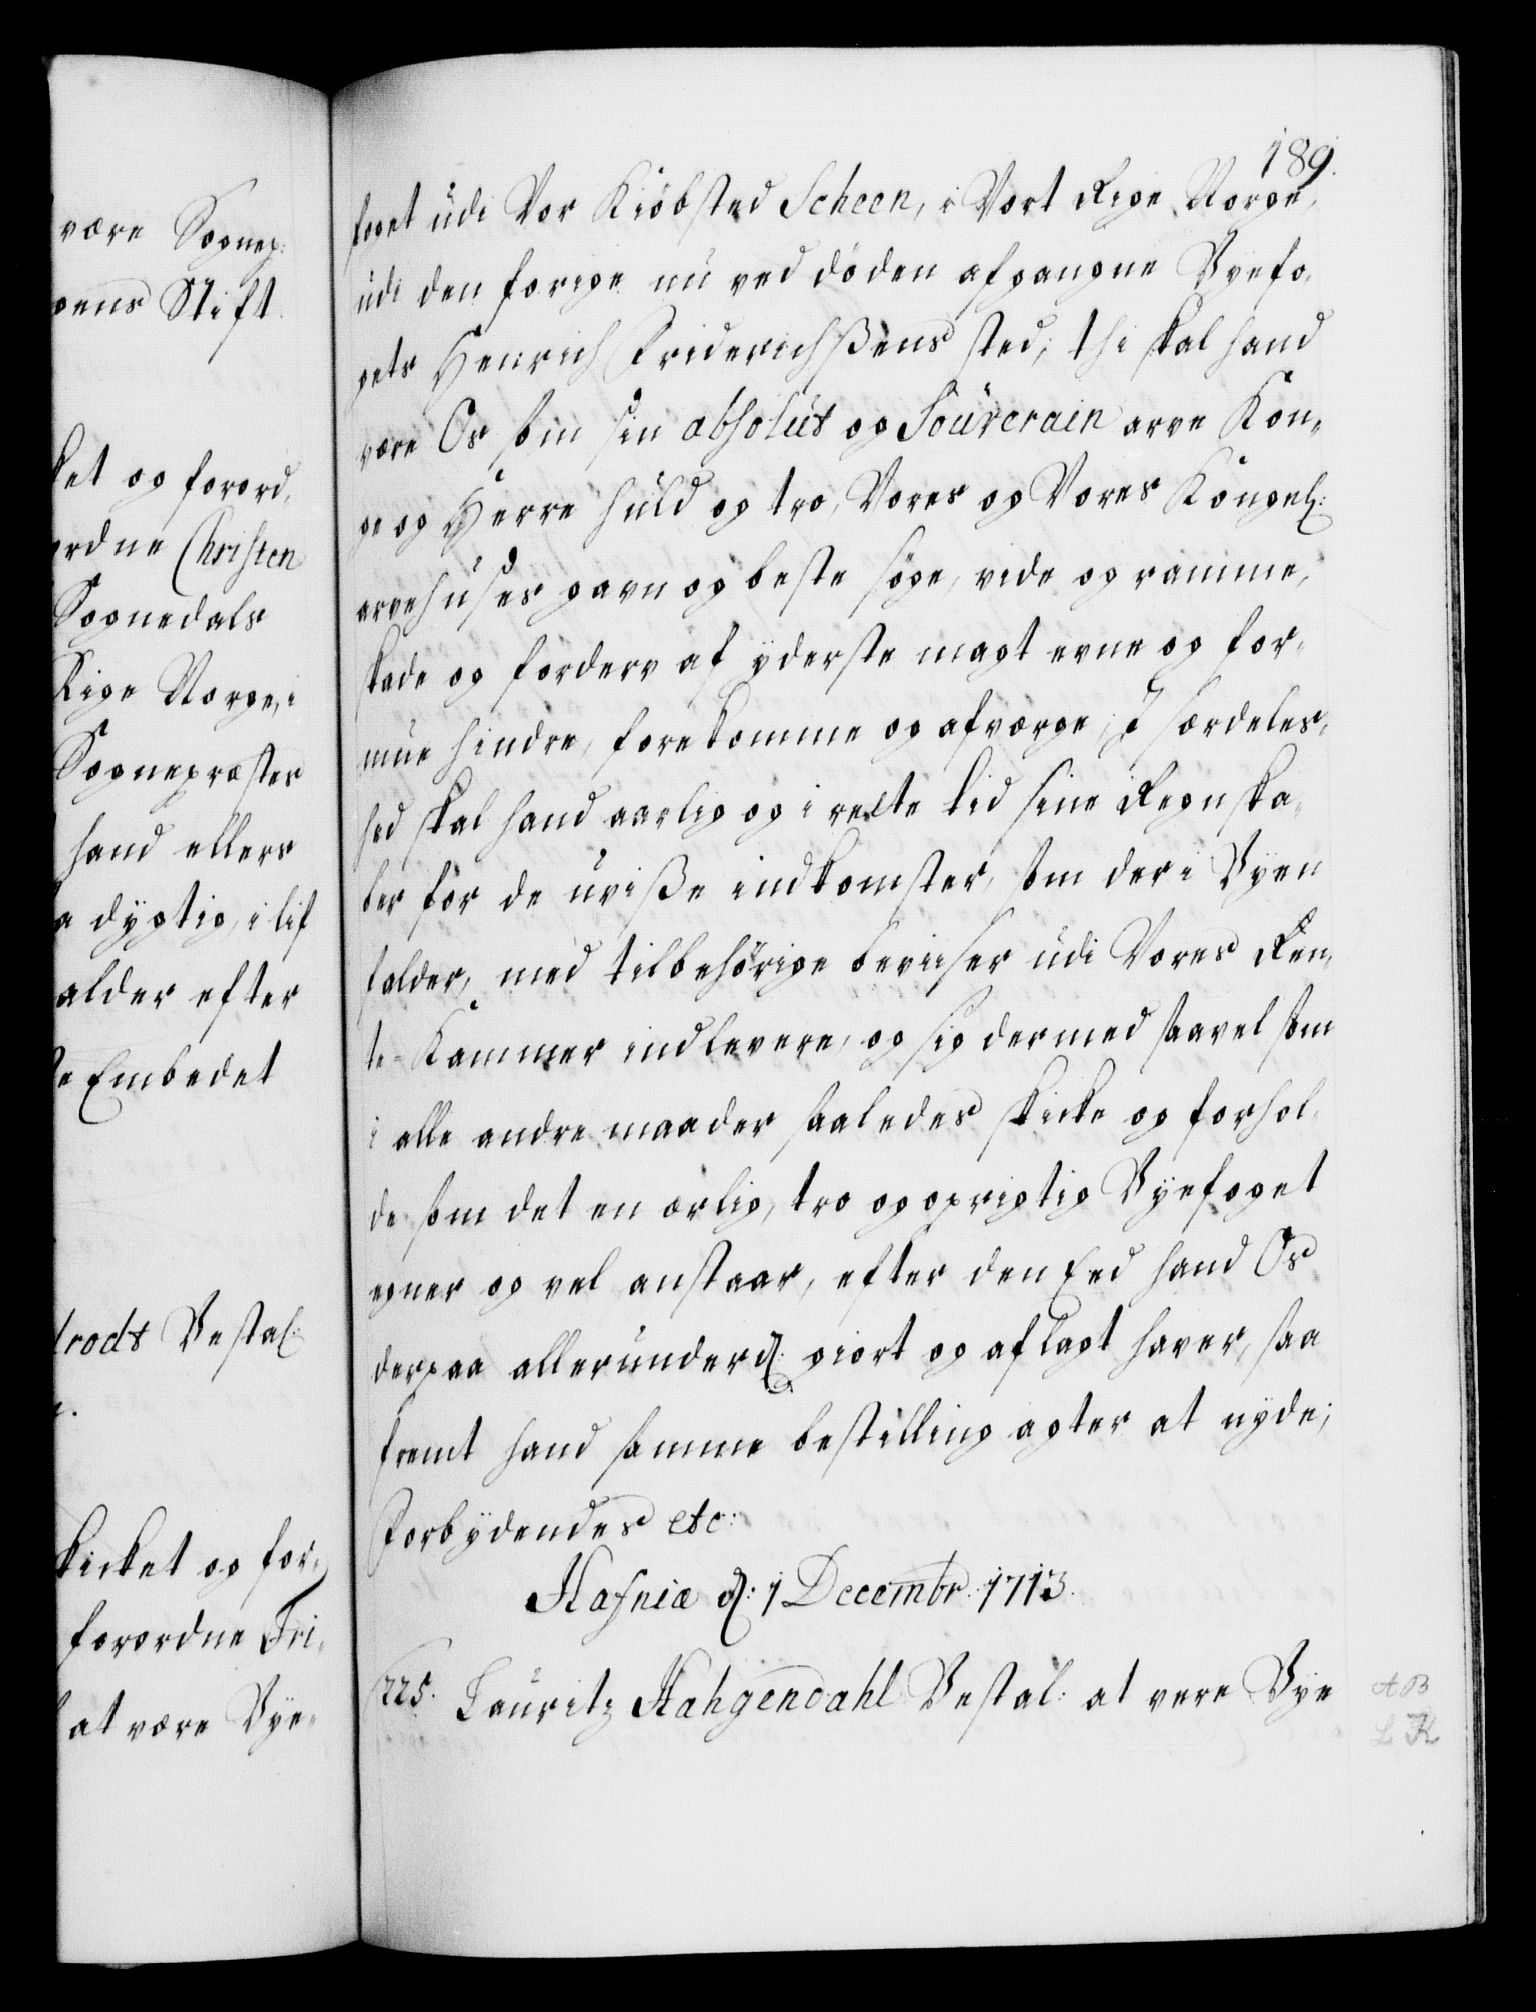 189.
foget udi Vor Kiöbsted Scheen, i Vort Rige Norge,
udi den forige nu ved döden afgangne Byefo,
gets Henrich Friderichßens sted; thi skal hand
være Os som sin absolut og Souverain arve Kon„
ge og Herre huld og tro, Vores og Vores Kongel:
arvehuses gavn og beste söge, vide og ramme,
skade og forderv af yderste magt evne og for„
mue hindre, forekomme og afværge; I særdeles,
hed skal hand aarlig og i rette tid sine Regnska„
ber for de uviße indkomster, som der i Byen
falder, med tilbehörige beviiser udi Vores Ren,
te-Kammer indlevere, og sig dermed saavel som
i alle andre maader saaledes skicke og forhol„
de som det en ærlig, tro og oprigtig Byefoget
egner og vel anstaar, efter den Eed hand Os
derpaa allerunderd: giort og aflagt haver, saa
fremt hand samme bestilling agter at nyde;
Forbydendes etc:
Hafniæ d: 1 Decembr. 1713.
225. Lauritz Hahgendahl Bestal: at vere Bye
AB
L K
være Sognep:
gens Stift.
ket og forord,
ordne Christen
Sognedals
Rige Norge, i
Sognepræstes
hand ellers
a dygtig, i lif
alder efter
Embedet
rodt Bestal:
kicket og for„
forordne Fri„
at være Bye„